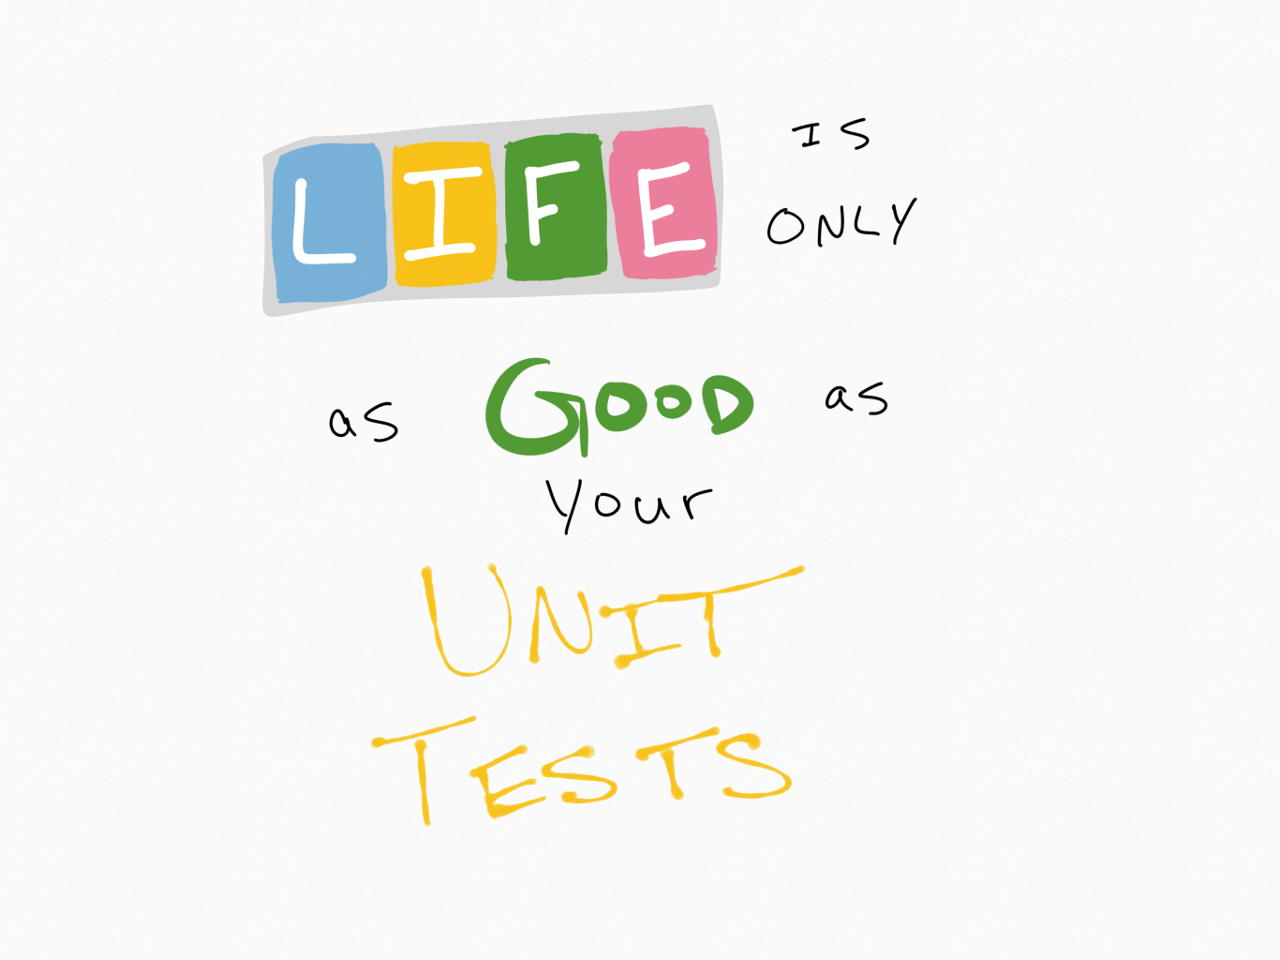 LIFE IS
ONLY
as GOOD as
your
UNIT
TESTS